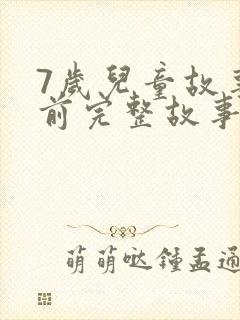 7歲兒童故事
前完整故事
萌萌哒鍾孟通